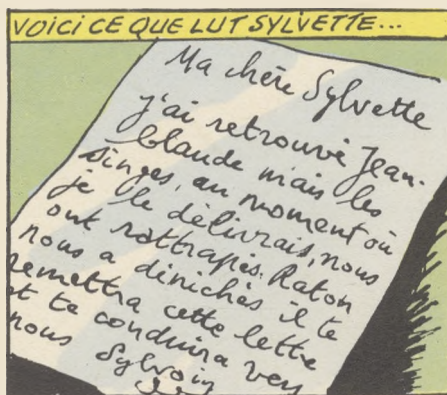 VOICI CE QUE LUT SYLVETTE...
Ma chère Sylvette
j'ai retrouvé Jean-
Claude mais les
singes, au moment où
je le délivrais, nous
ont rattrapés. Raton
nous a dénichés il te
remettra cette lettre
et te conduira vers
nous Sylvain